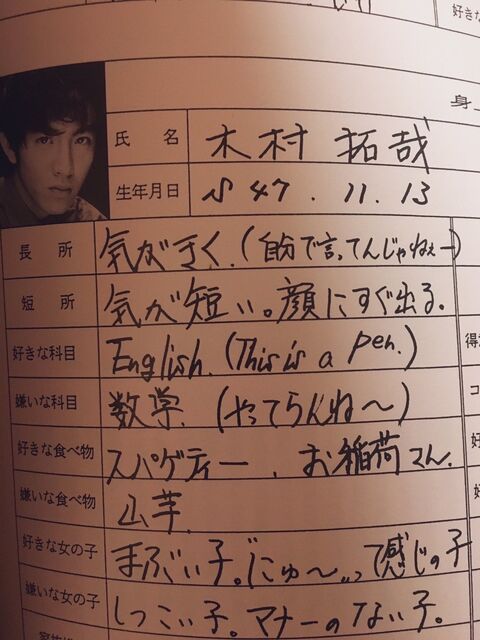 好き
身
氏 名 木村 拓哉
生年月日 S 47. 11. 13
長 所 気がきく。(自分で言ってんじゃねぇー)
短 所 気が短い。顔にすぐ出る。
好きな科目 English. (This is a pen.)
得
嫌いな科目 数学. (やってらんね〜)
コ
好きな食べ物 スパゲティー、お稲荷さん.
好
嫌いな食べ物 山芋.
好
好きな女の子 まぶい子。“にゅ〜„って感じの子
嫌いな女の子 しつこい子。マナーのない子。